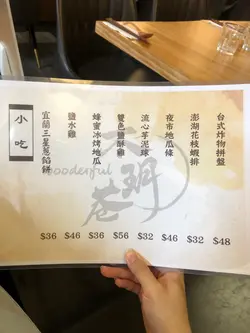 小吃
宜蘭三星蔥餡餅
鹽水雞
蜂蜜冰烤地瓜
雙色鹽酥雞
流心芋泥球
夜市地瓜條
澎湖花枝蝦排
台式炸物拼盤
$36
$46
$36
$56
$32
$46
$32
$48
wooderful
巷